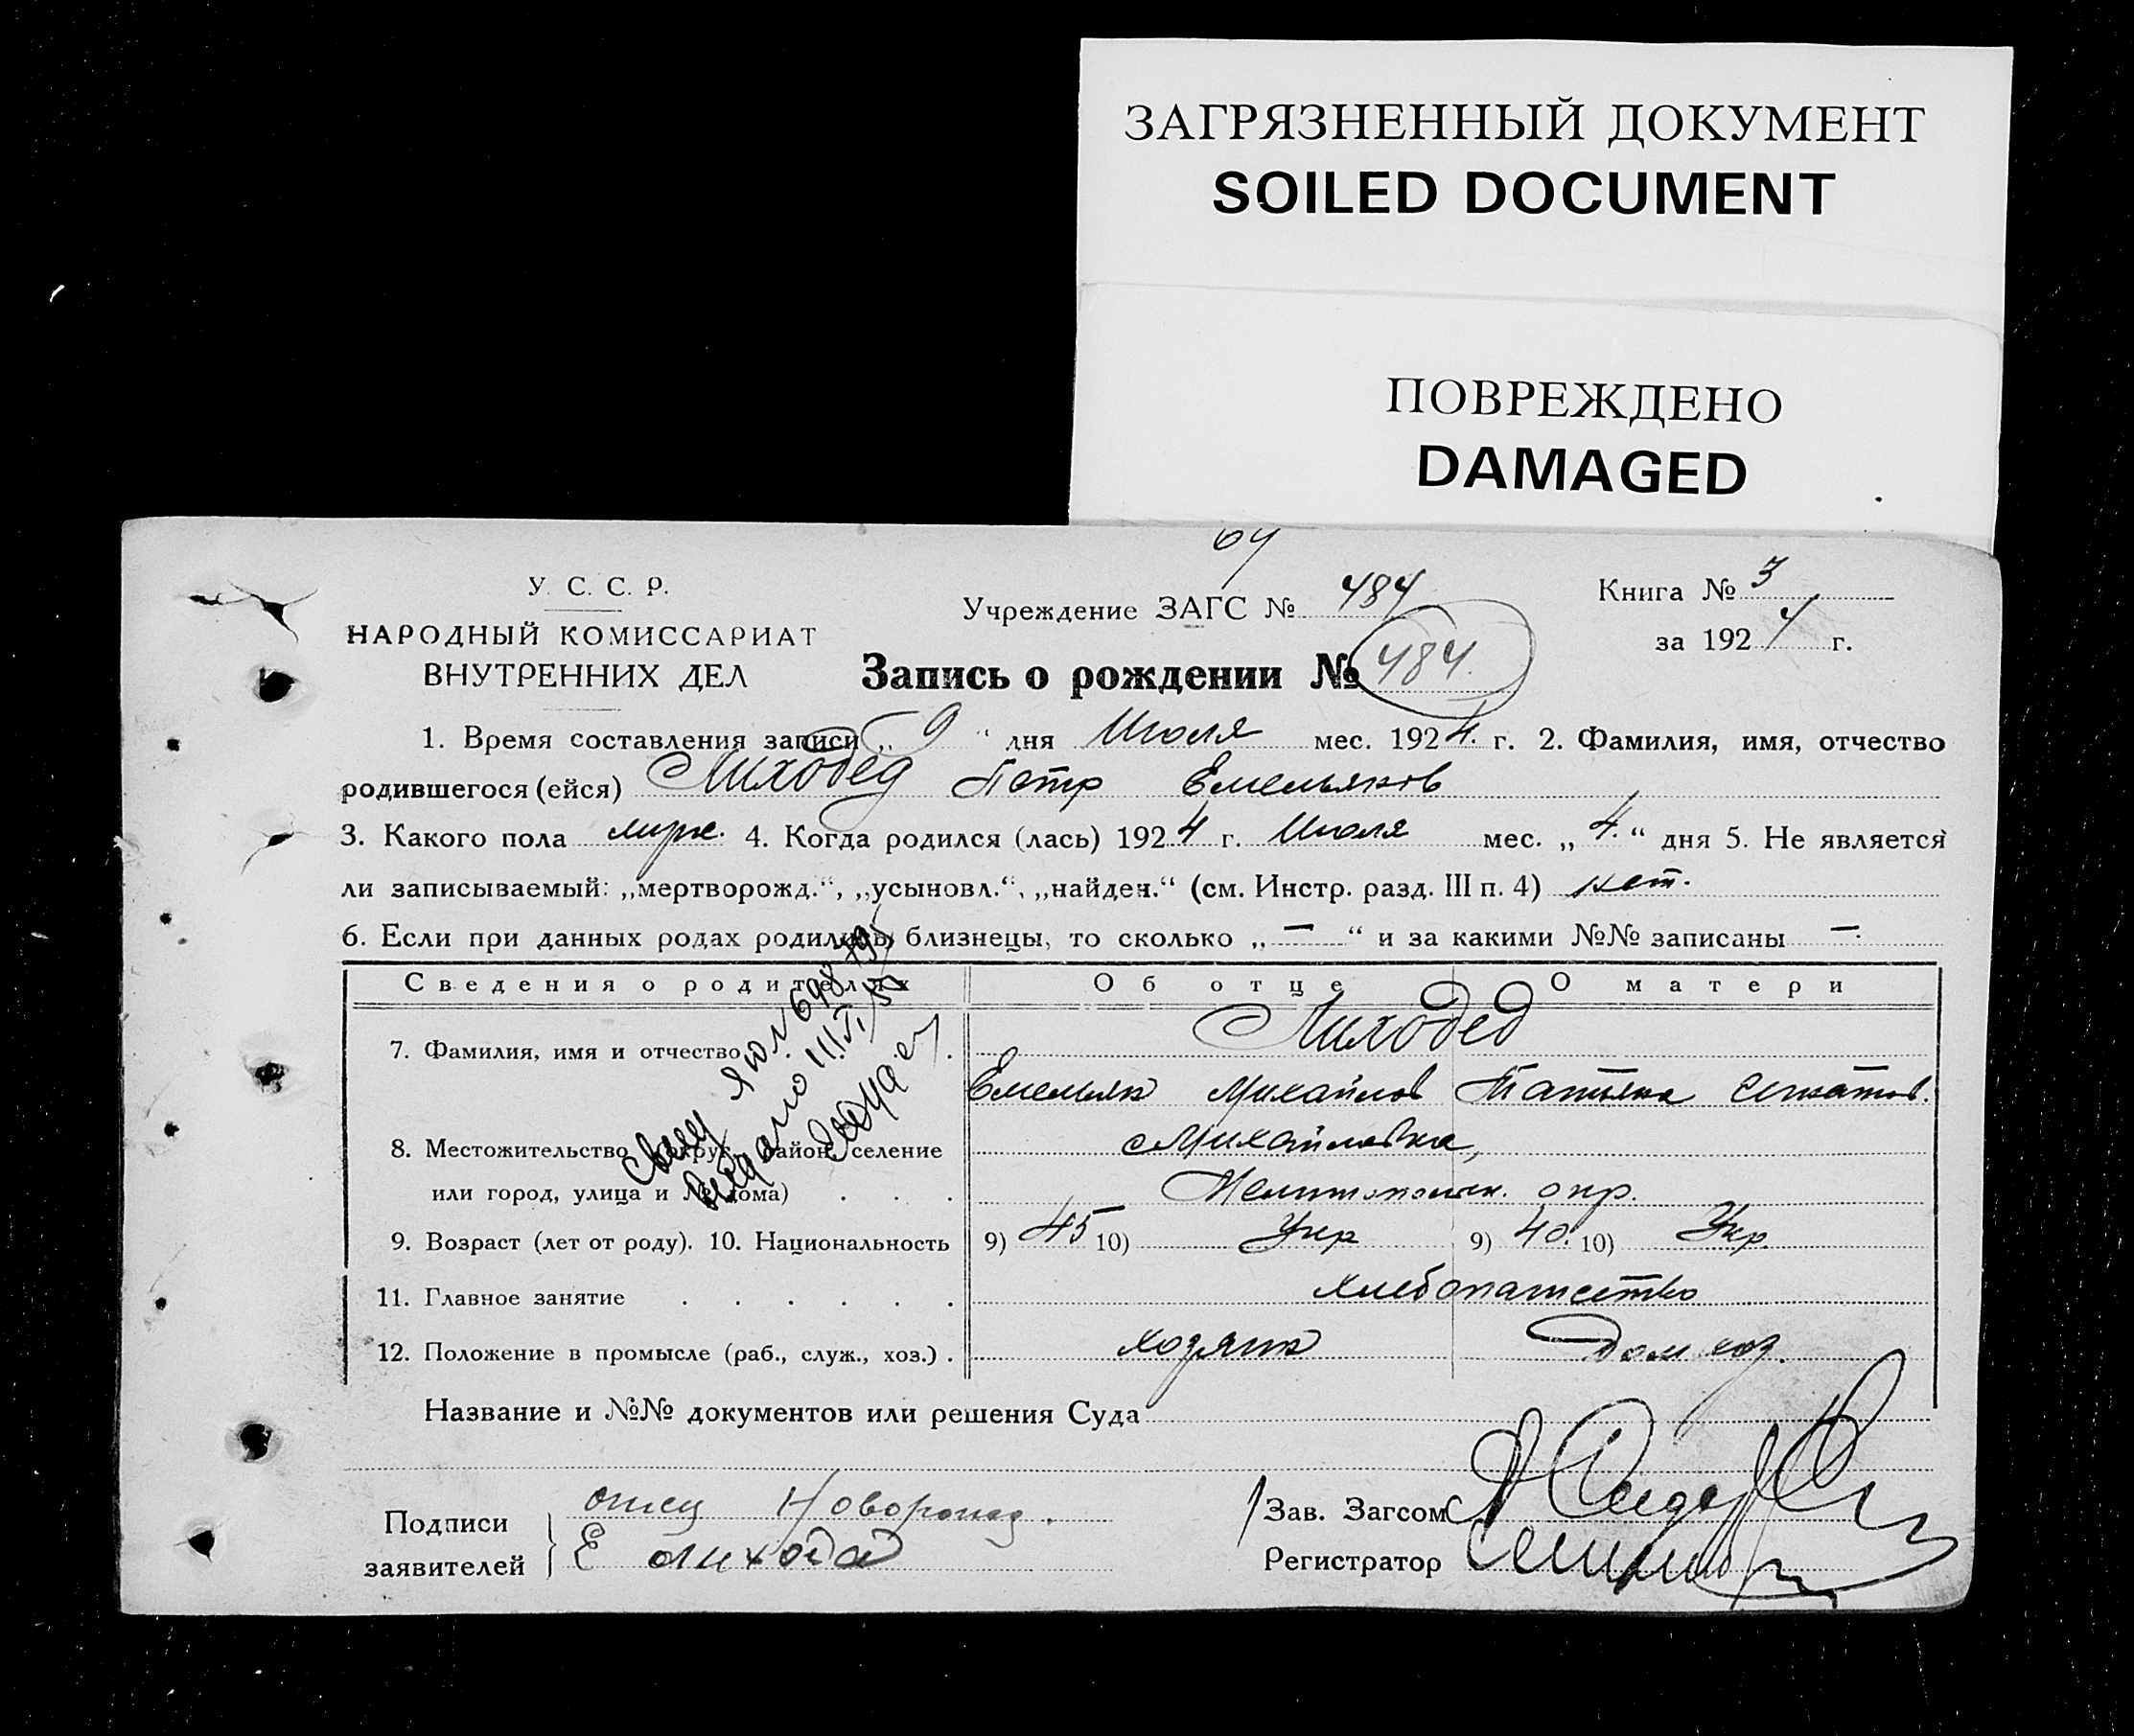 ЗАГРЯЗНЕННЫЙ ДОКУМЕНТ
SOILED DOCUMENT
ПОВРЕЖДЕНО
DAMAGED
У. С. С. Р.
НАРОДНЫЙ КОМИССАРИАТ
ВНУТРЕННИХ ДЕЛ
Учреждение ЗАГС № 484
Книга № 3
за 1924 г.
Запись о рождении № 484.
1. Время составления записи „ 9 “ дня Июля мес. 1924. г. 2. Фамилия, имя, отчество
родившегося (ейся) Лиходед Петр Емельянов
3. Какого пола муж. 4. Когда родился (лась) 1924 г. Июля мес. „ 4. “ дня 5. Не является
ли записываемый: „мертворожд.“, „усыновл.“, „найден.“ (см. Инстр. разд. III п. 4) нет.
6. Если при данных родах родились близнецы, то сколько „ — “ и за какими №№ записаны —.
Сведения о родителях Об отце О матери
7. Фамилия, имя и отчество Лиходед
Емельян Михайлов Татьяна
8. Местожительство (округ, район, селение Михайловка,
или город, улица и № дома) Мелитопольск. окр.
9. Возраст (лет от роду). 10. Национальность 9) 45 10) Укр 9) 40. 10) Укр.
11. Главное занятие хлебопашество
12. Положение в промысле (раб., служ., хоз.) хозяин Дом хоз.
Название и №№ документов или решения Суда
Подписи отец Новорожд.
заявителей Е Лиходед
Зав. Загсом
Регистратор